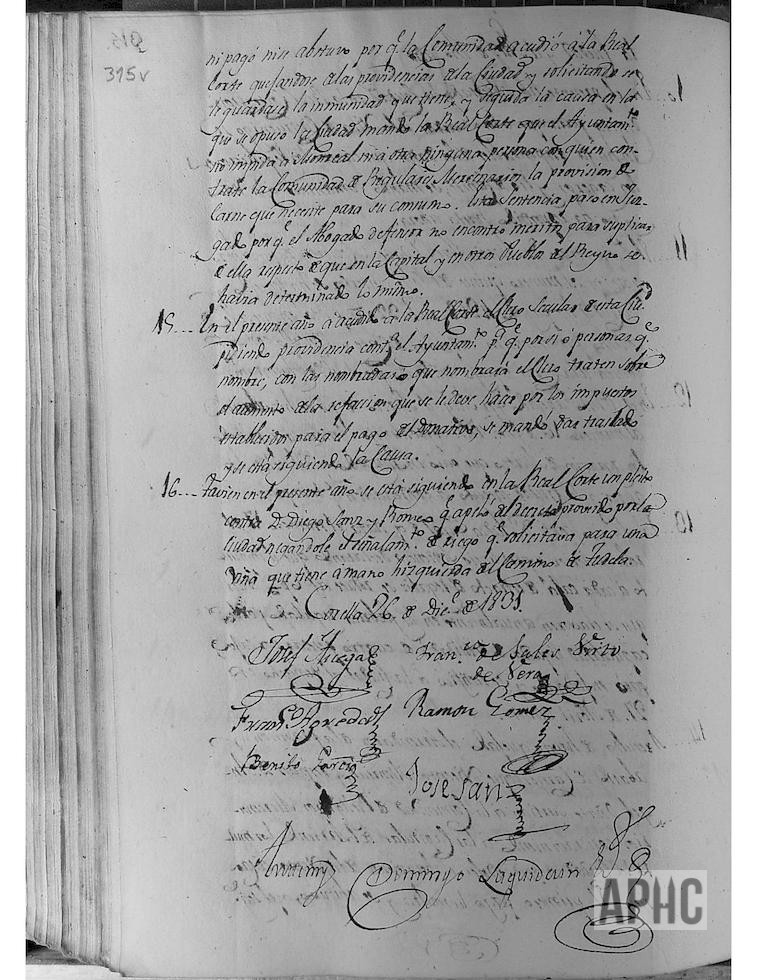 315v
ni pagó ni se abstuvo por q.e la Comunidad acudió á la Real
Corte quejandose de las providencias de la Ciudad y solicitando se
le guardase la inmunidad que tiene, y seguida la causa en la
que se opuso la Ciudad mandó la Real Corte que el Ayuntam.to
no impida á Monreal ni á otra ninguna persona con quien con-
trate la Comunidad de Regulares Mercenarios la provision de
Carne que necesite para su consumo. Esta Sentencia pasó en Juz-
gado por q.e el Abogado defensor no encontró meritos para suplicar
de ella respecto de que en la Capital y en otros Pueblos del Reyno se
havia determinado lo mismo.
15... En el presente año á acudido á la Real Corte el Clero Secular de esta Ciu.d
pidiendo providencia cont.a el Ayuntam.to p.a q.e por si ó personas q.e
nombre, con las nombradas ó que nombrará el Clero traten sobre
el aumento de la refaccion que se le deve hacer por los impuestos
establecidos para el pago del donativo, se mandó dar traslado
y se está siguiendo la Causa.
16... Tavien en el presente año se está siguiendo en la Real Corte un pleito
contra D. Diego Sanz y Romeo q.e apeló del decreto proveido por la
Ciudad negandole el señalam.to de riego q.e solicitava para una
viña que tiene á mano hizquierda del Camino de Tudela.
Corella 26 de Dic.e de 1831.
Josef
Fran.co de Sales Virto
de Vera
Fran.co Agreda
Ramon Gomez
Benito Garcia
Jose Sanz
Domingo
APHC